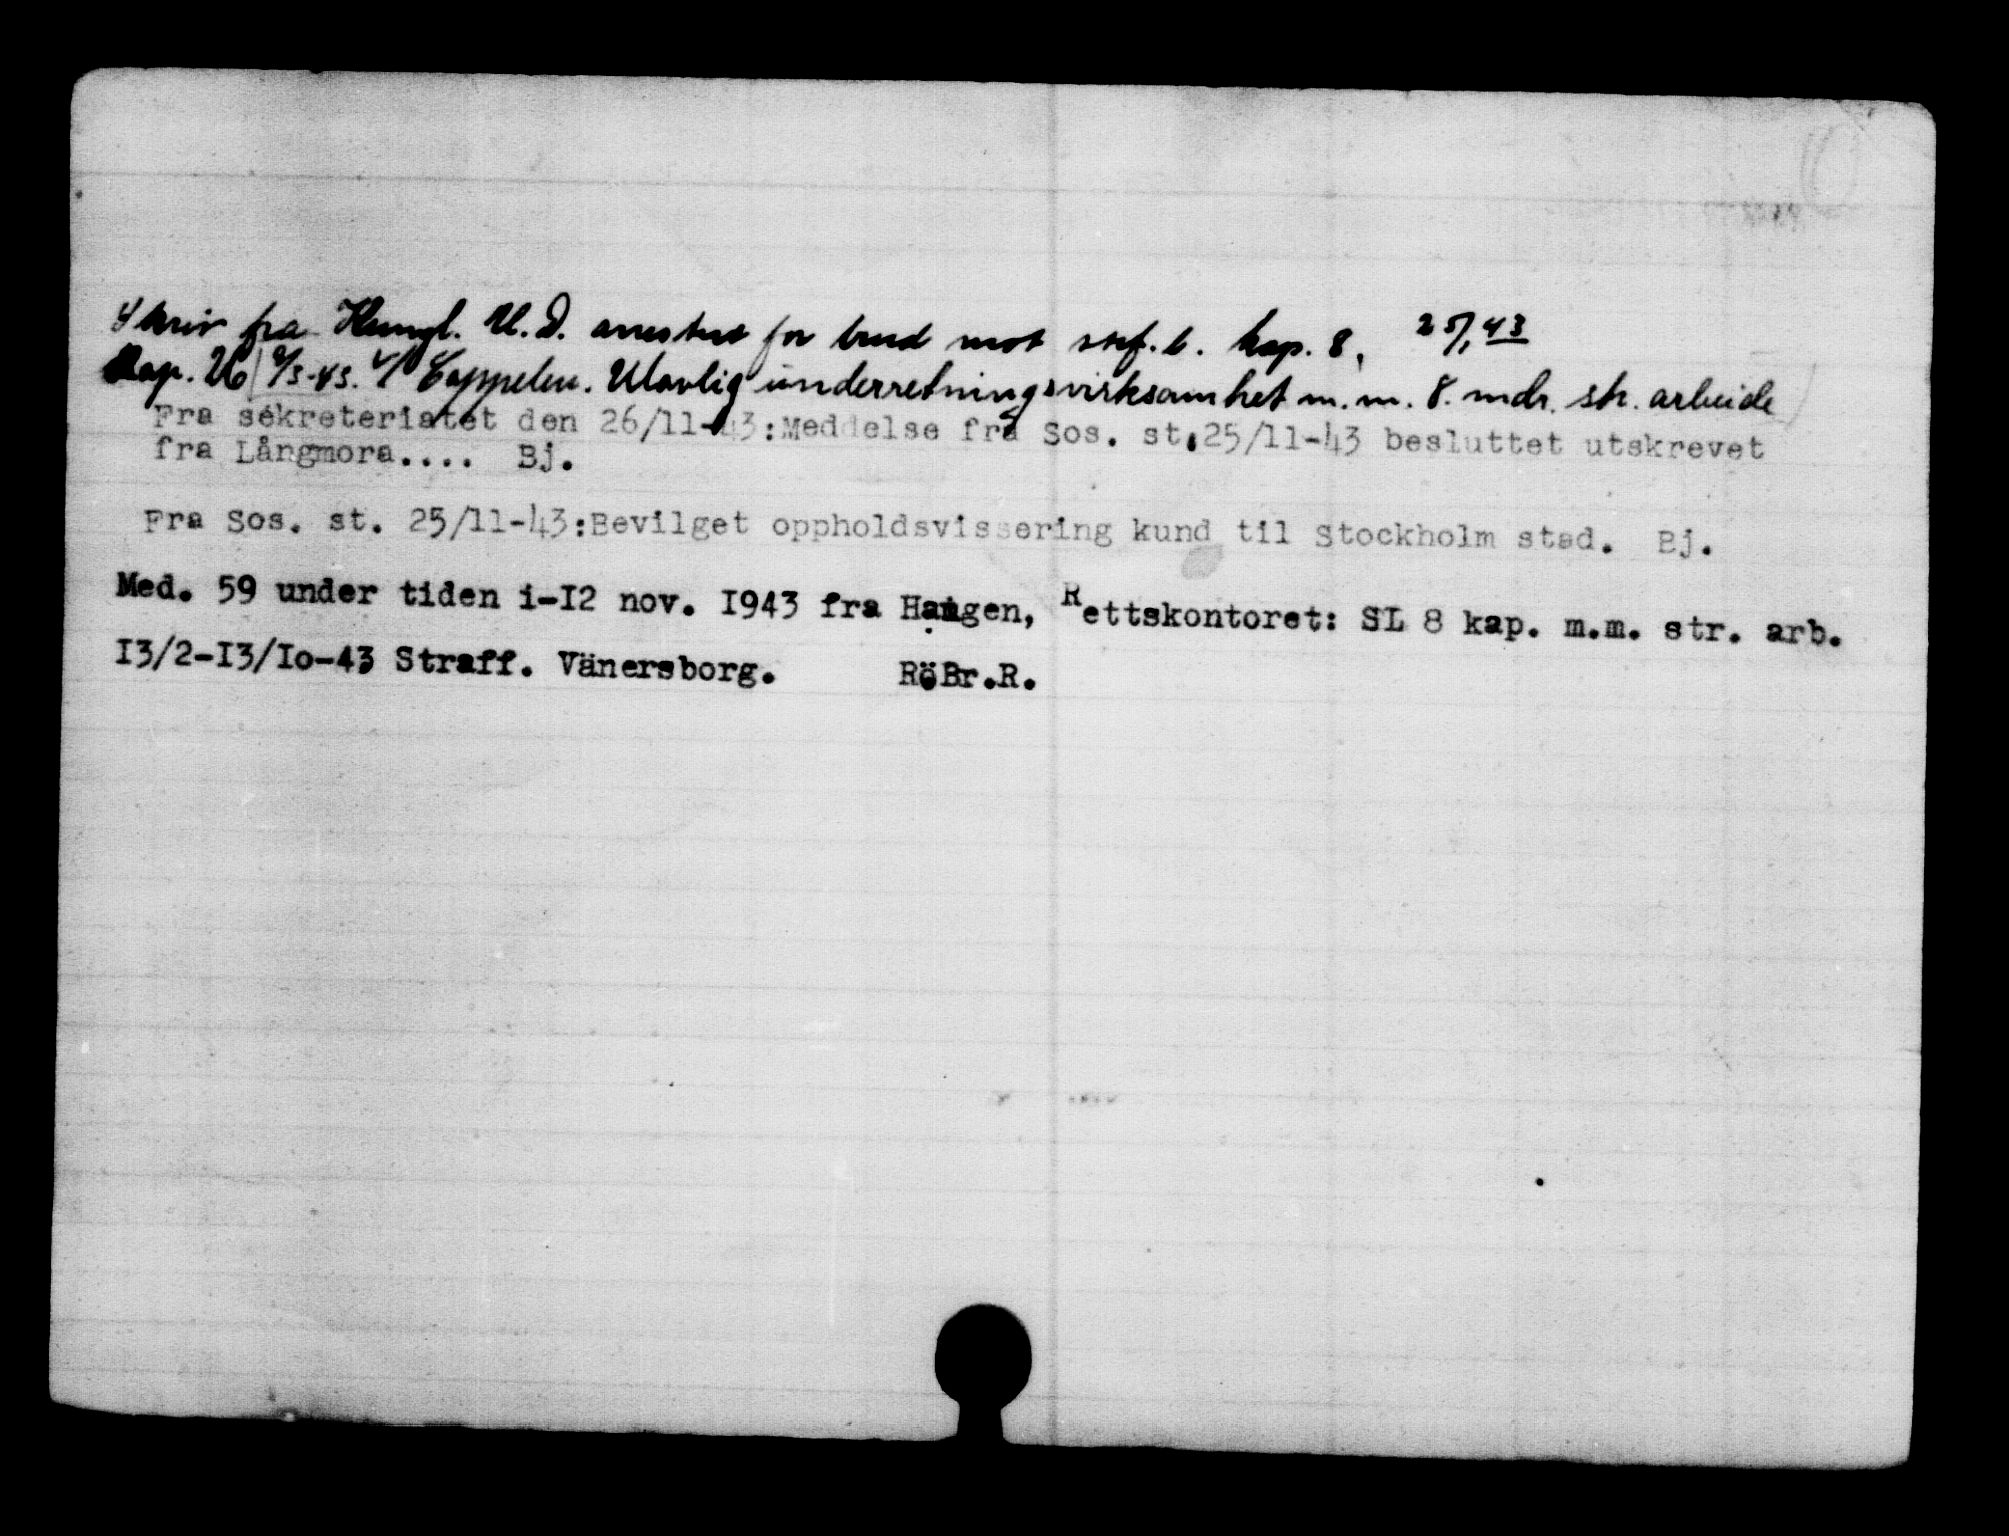 Skriv fra Kungl. U.D. arrestert for brud mot strf.l. kap. 8, 25/1 43
Rap. 26 /3-43. v/ Cappelen. Ulovlig underretningsvirksomhet m.m. 8. mdr. str. arbeide
Fra sekreteriatet den 26/11-43:Meddelse fra Sos. st.25/11-43 besluttet utskrevet
fra Långmora.... Bj.
Fra Sos. st. 25/11-43:Bevilget oppholdsvissering kund til Stockholm stad. Bj.
Med. 59 under tiden i-I2 nov. I943 fra Haugen, Rettskontoret: SL 8 kap. m.m. str. arb.
I3/2-I3/Io-43 Straff. Vänersborg. RöBr.R.